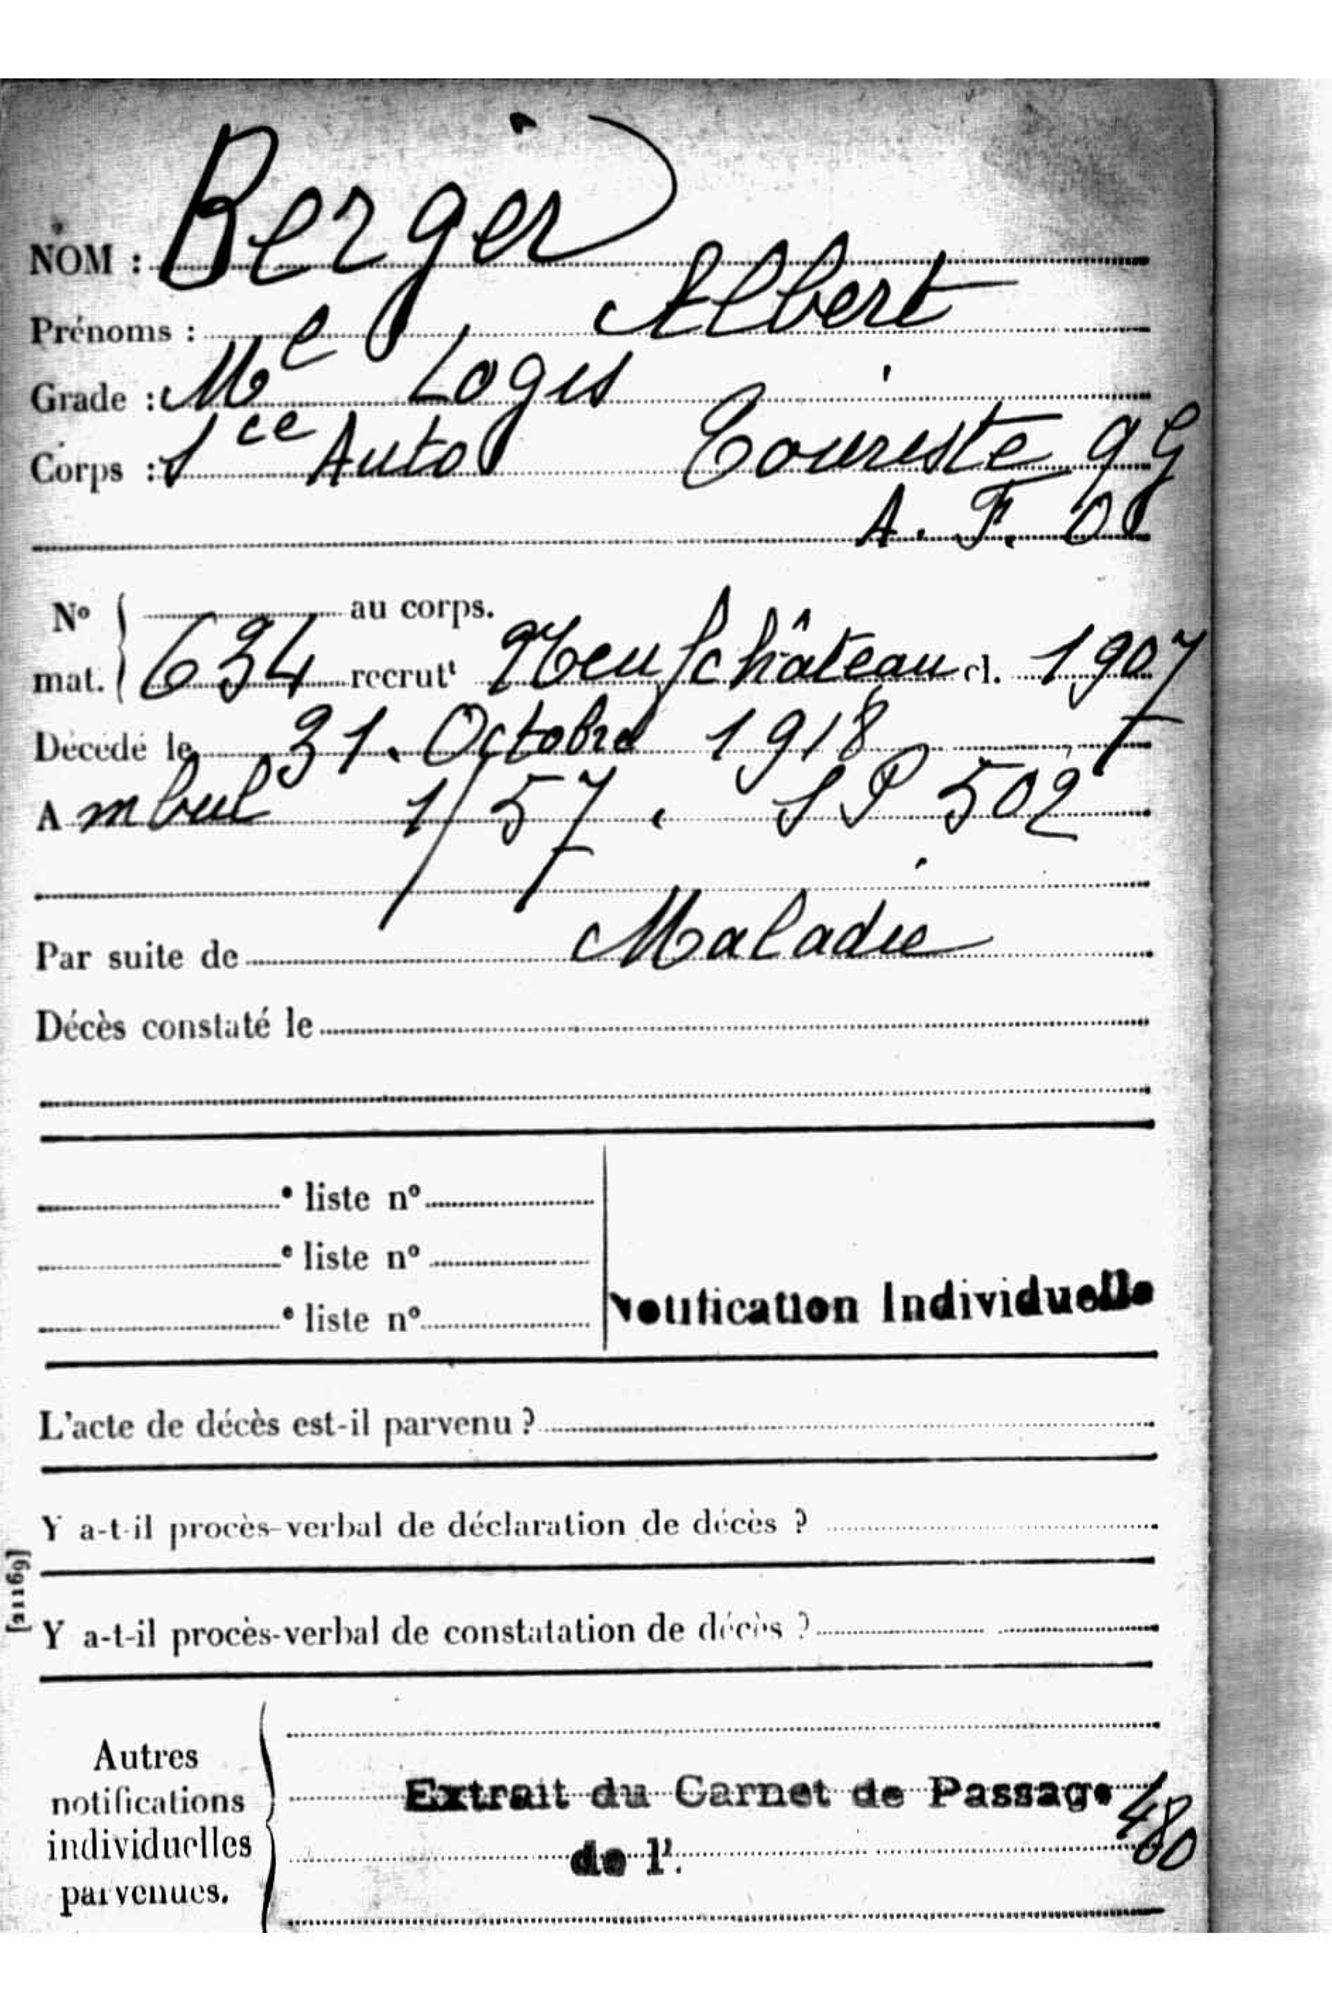 NOM : Berger
Prénoms : Albert
Grade : Mᵉ Logis
Corps : Sce Auto Touriste GG
A. F. O
N° au corps.
mat. 634 recrutᵗ Neufchâteau cl. 1907
Décédé le 31. Octobre 1918
A mbul 1/57. SP 502
Par suite de Maladie
Décès constaté le
° liste n°
° liste n°
° liste n°
Notification Individuelle
L'acte de décès est-il parvenu ?
Y a-t-il procès-verbal de déclaration de décès ?
[21169]
Y a-t-il procès-verbal de constatation de décès ?
Autres
notifications
individuelles
parvenues.
Extrait du Carnet de Passage 480
de l'.